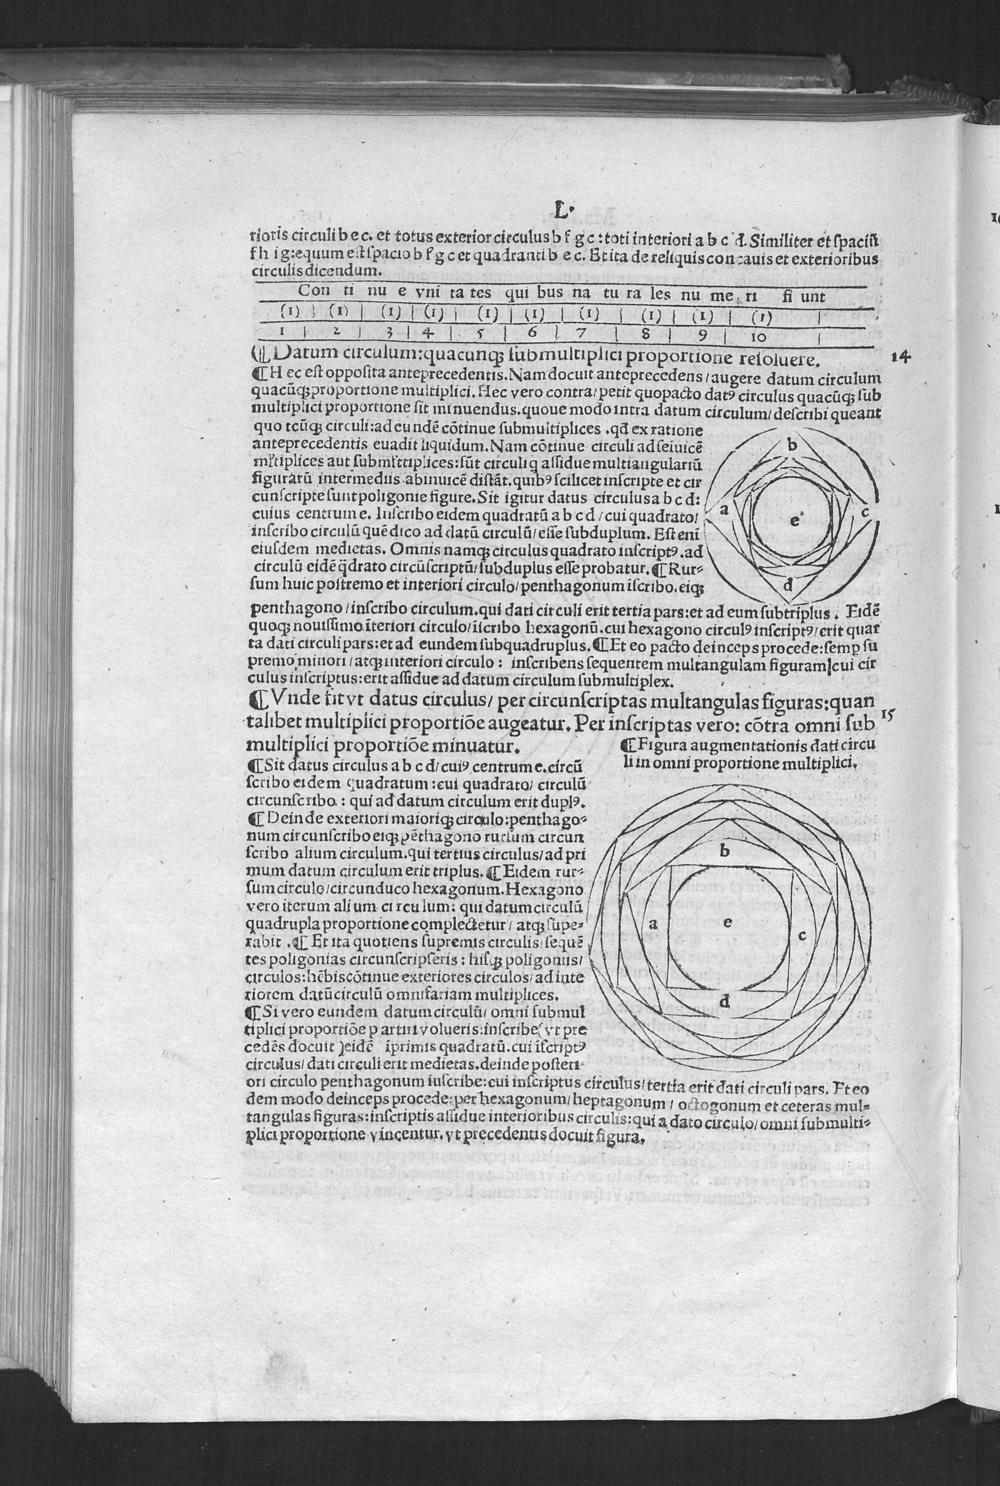 L.
rioris circuli b e c. et totus exterior circulus b f g c : toti interiori a b c d. Similiter et spaciū
f h i g: equum est spacio b f g c et quadranti b e c. Et ita de reliquis concauis et exterioribus
circulis dicendum.
Con ti nu e vni ta tes qui bus na tu ra les nu me ri fi unt
(1) | (1) | (1) | (1) | (1) | (1) | (1) | (1) | (1) | (1) |
1 | 2 | 3 | 4 | 5 | 6 | 7 | 8 | 9 | 10 |
¶ Datum circulum: quacunqꝫ submultiplici proportione resoluere. 14
¶ Hec est opposita anteprecedentis. Nam docuit anteprecedens / augere datum circulum
quacūqꝫ proportione multiplici. Hec vero contra / petit quo pacto datꝰ circulus quacūqꝫ sub
multiplici proportione sit minuendus. quoue modo intra datum circulum / describi queant
quotcūqꝫ circuli: ad eundē cōtinue submultiplices. qd ex ratione
anteprecedentis euadit liquidum. Nam cōtinue circuli ad seiuicē
mltiplices aut submltiplices: sūt circuli q assidue multiangulariū
figurarū intermediis abinuicē distāt. quibꝰ scilicet inscripte et cir
cunscripte sunt poligonie figure. Sit igitur datus circulus a b c d:
cuius centrum e. Inscribo eidem quadratū a b c d / cui quadrato /
inscribo circulū quē dico ad datū circulū / esse subduplum. Est eni
eiusdem medietas. Omnis namqꝫ circulus quadrato inscriptꝰ. ad
circulū eidē q̄drato circūscriptū / subduplus esse probatur. ¶ Rur-
sum huic postremo et interiori circulo / penthagonum īscribo. eiqꝫ
penthagono / inscribo circulum. qui dati circuli erit tertia pars: et ad eum subtriplus. Eidē
quoqꝫ nouissimo īteriori circulo / īscribo hexagonū. cui hexagono circulꝰ inscriptꝰ / erit quar
ta dati circuli pars: et ad eundem subquadruplus. ¶ Et eo pacto deinceps procede: semp su
premo minori / atqꝫ interiori circulo : inscribens sequentem multangulam figuram / cui cir
culus inscriptus: erit assidue ad datum circulum submultiplex.
¶ Vnde fit vt datus circulus / per circunscriptas multangulas figuras: quan
talibet multiplici proportiōe augeatur. Per inscriptas vero: cōtra omni sub 15
multiplici proportiōe minuatur.
¶ Figura augmentationis dati circu
li in omni proportione multiplici.
¶ Sit datus circulus a b c d / cuiꝰ centrum e. circū
scribo eidem quadratum : cui quadrato / circulū
circunscribo : qui ad datum circulum erit duplꝰ.
¶ Deinde exteriori maioriqꝫ circulo: penthago-
num circunscribo eiqꝫ pēthagono rursum circun
scribo alium circulum. qui tertius circulus / ad pri
mum datum circulum erit triplus. ¶ Eidem rur-
sum circulo / circunduco hexagonum. Hexagono
vero iterum alium circulum: qui datum circulū
quadrupla proportione complectetur / atqꝫ supe-
rabit. ¶ Et ita quotiens supremis circulis / sequē
tes poligonias circunscripseris : hisqꝫ poligoniis /
circulos: hēbis cōtinue exteriores circulos / ad inte
riorem datū circulū omnifariam multiplices.
¶ Si vero eundem datum circulū / omni submul
tiplici proportiōe partiri volueris: inscribe (vt pre
cedēs docuit) eidē īprimis quadratū. cui īscriptꝰ
circulus / dati circuli erit medietas. deinde posteri-
ori circulo penthagonum inscribe: cui inscriptus circulus / tertia erit dati circuli pars. Et eo
dem modo deinceps procede: per hexagonum / heptagonum / octogonum et ceteras mul-
tangulas figuras: inscriptis assidue interioribus circulis: qui a dato circulo / omni submulti-
plici proportione vincentur. vt precedentis docuit figura.
b
a
e
c
d
b
a
e
c
d